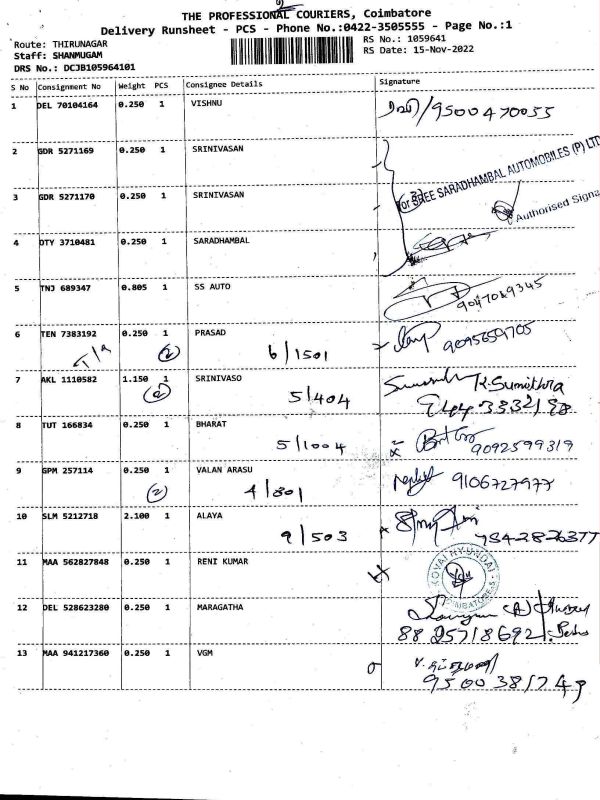 THE PROFESSIONAL COURIERS, Coimbatore
Delivery Runsheet - PCS - Phone No.:0422-3505555 - Page No.:1
Route: THIRUNAGAR
RS No.: 1059641
Staff: SHANMUGAM
RS Date: 15-Nov-2022
DRS No.: DCJB105964101
S No Consignment No Weight PCS Consignee Details Signature
1 DEL 70104164 0.250 1 VISHNU /9500470055
2 GDR 5271169 0.250 1 SRINIVASAN
For SREE SARADHAMBAL AUTOMOBILES (P) LTD
3 GDR 5271170 0.250 1 SRINIVASAN
Authorised Signa
4 DTY 3710481 0.250 1 SARADHAMBAL
5 TNJ 689347 0.805 1 SS AUTO
6 TEN 7383192 0.250 1 PRASAD
(2) 6/1501 9095659705
7 AKL 1110582 1.150 1 SRINIVASO K.Sumithra
(2) 5/404
8 TUT 166834 0.250 1 BHARAT
5/1004 9092599319
9 GPM 257114 0.250 1 VALAN ARASU 9106727977
(2) 4/801
10 SLM 5212718 2.100 1 ALAYA
9/503
11 MAA 562827848 0.250 1 RENI KUMAR
KOVAI HYUNDAI
COIMBATORE-5
12 DEL 528623280 0.250 1 MARAGATHA
8825718692
13 MAA 941217360 0.250 1 VGM